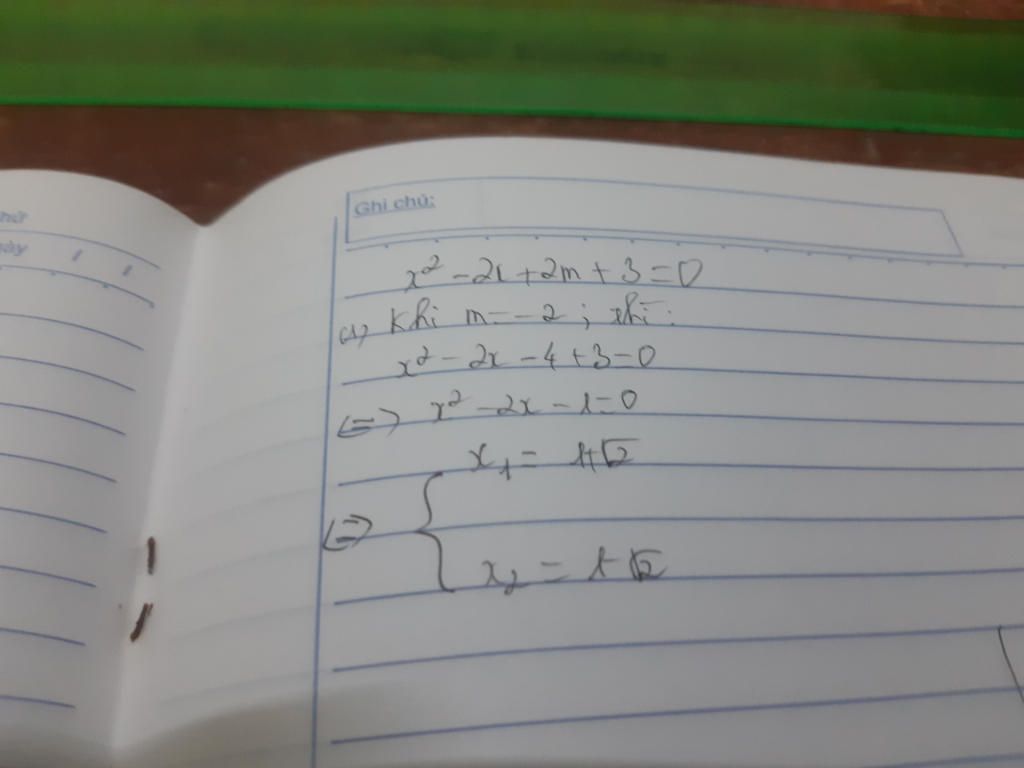 hứ
ày / /
Ghi chú:
x² - 2x + 2m + 3 = 0
Khi m = - 2 ; thì :
x² - 2x - 4 + 3 = 0
<=> x² - 2x - 1 = 0
x₁ = 1+√2
<=> {
x₂ = 1-√2